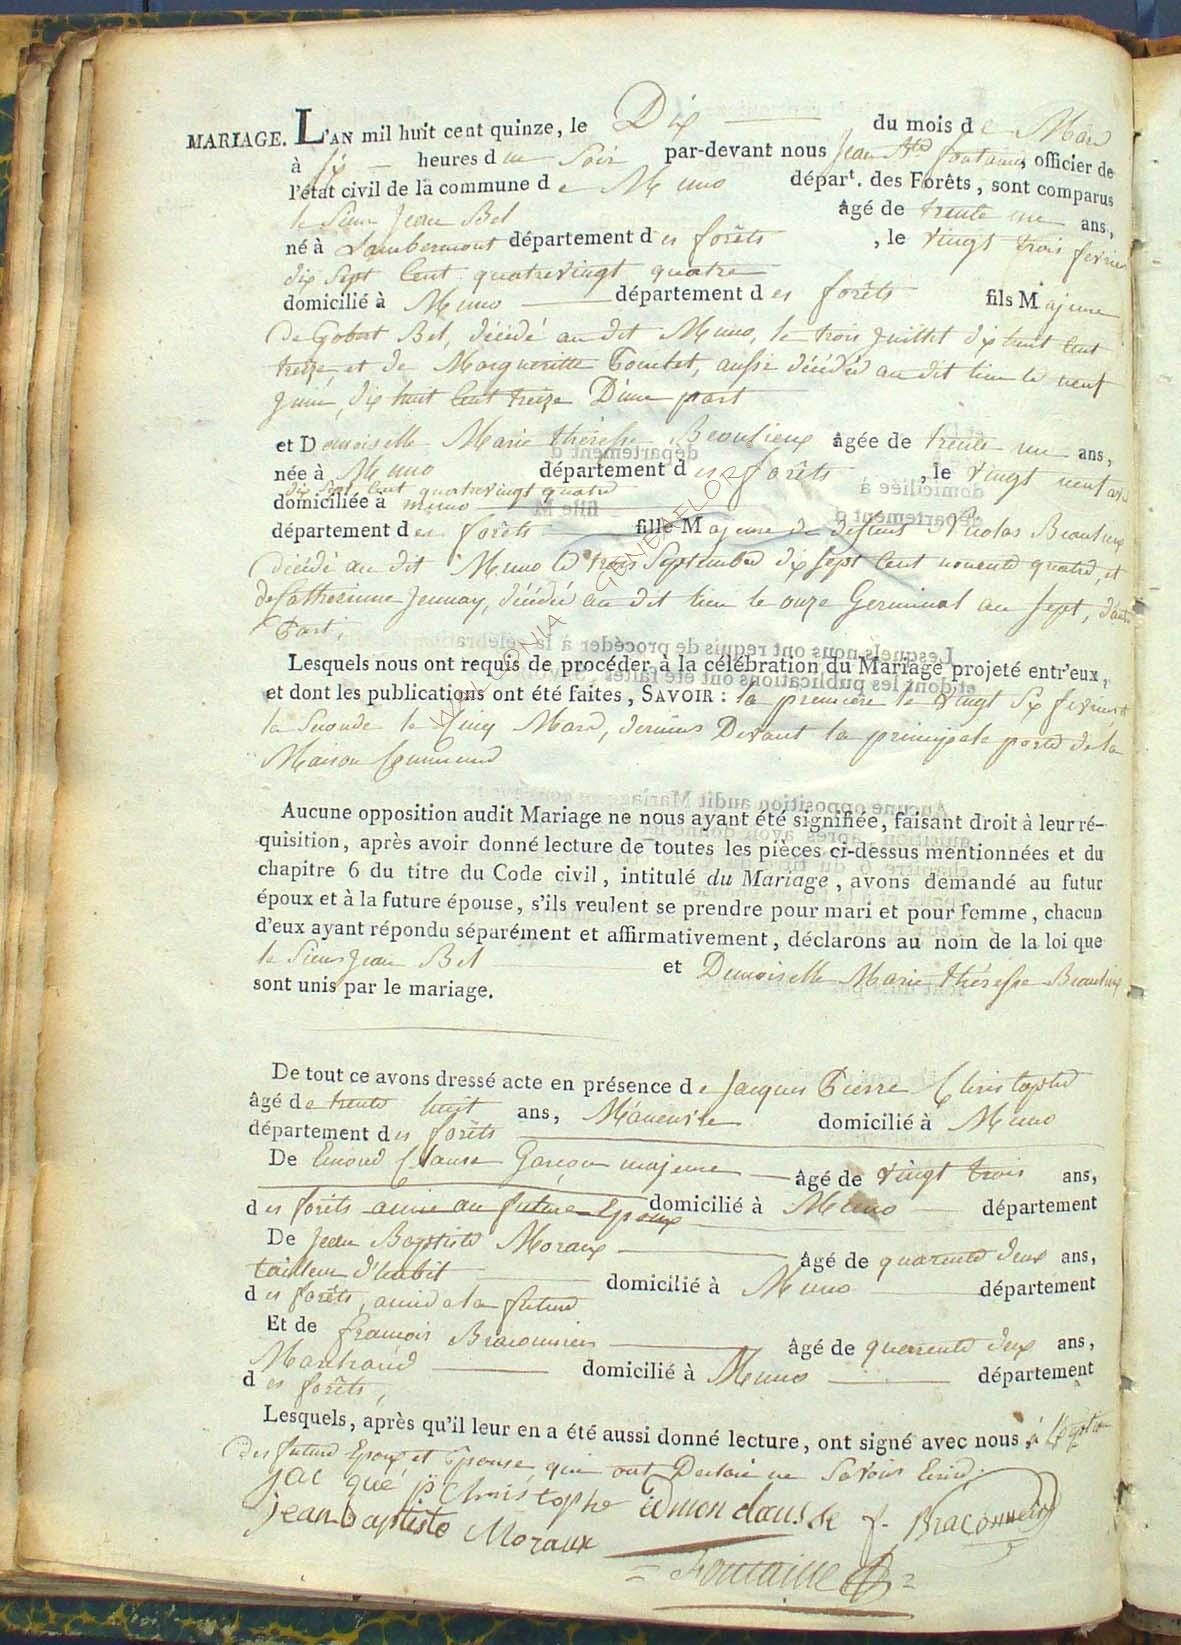 MARIAGE. L'AN mil huit cent quinze, le Dix du mois de Mars
à six heures du Soir par-devant nous Jean Bte fontaine, officier de
l'état civil de la commune de Muno départ. des Forêts, sont comparus
le Sieur Jean Bel âgé de trente un ans,
né à Lambermont département des forêts, le vingt trois fevrier
dix Sept Cent quatrevingt quatre
domicilié à Muno département des forêts fils Majeure
De Gobert Bel, décédé au dit Muno, le trois Juillet dix huit Cent
treize, et de Margueritte Toutet, aussi décédée au dit lieu le neuf
Juin, dix huit Cent treize D'une part
et Demoiselle Marie thérèsse Beaulieux âgée de trente un ans,
née à Muno département des forêts, le vingt neuf
dix Sept Cent quatrevingt quatre
domiciliée à muno
département des forêts fille Majeure de defunts Nicolas Beaulieux
décédé au dit Muno le trois Septembre dix Sept Cent nonente quatre, et
de Catherinne Jennay, décédée au dit lieu le onze Germinal an Sept, d'autre
Part;
Lesquels nous ont requis de procéder à la célébration du Mariage projeté entr'eux,
et dont les publications ont été faites, SAVOIR: la première le vingt Six fevrier, et
la Seconde le Cinq Mars, derniers Devant la principale porte de la
Maison Commune
Aucune opposition audit Mariage ne nous ayant été signifiée, faisant droit à leur ré-
quisition, après avoir donné lecture de toutes les pièces ci-dessus mentionnées et du
chapitre 6 du titre du Code civil, intitulé du Mariage, avons demandé au futur
époux et à la future épouse, s'ils veulent se prendre pour mari et pour femme, chacun
d'eux ayant répondu séparément et affirmativement, déclarons au nom de la loi que
le Sieur Jean Bel et Demoiselle Marie thérèsse Beaulieux
sont unis par le mariage.
De tout ce avons dressé acte en présence de Jacques Pierre Christophe
âgé de trente huit ans, Maneuvre domicilié à Muno
département des forêts
De Emond Clausse Garçon majeure âgé de vingt trois ans,
domicilié à Muno département
des forêts amie au future Epoux
De Jean Baptiste Moraux âgé de quarente deux ans,
tailleur d'habit domicilié à Muno département
des forêts, amie a la future
Et de francois Braconnier âgé de quarente deux ans,
Marchand domicilié à Muno département
des forêts,
Lesquels, après qu'il leur en a été aussi donné lecture, ont signé avec nous, à l'exception
des future Epoux et Epouse, qui ont Declaré ne Savoir Ecrire.
jacque p christophe Edmon clausse f. Braconnier
jean baptiste Moraux
Fontaine
WALLONIA GENEA FLORE